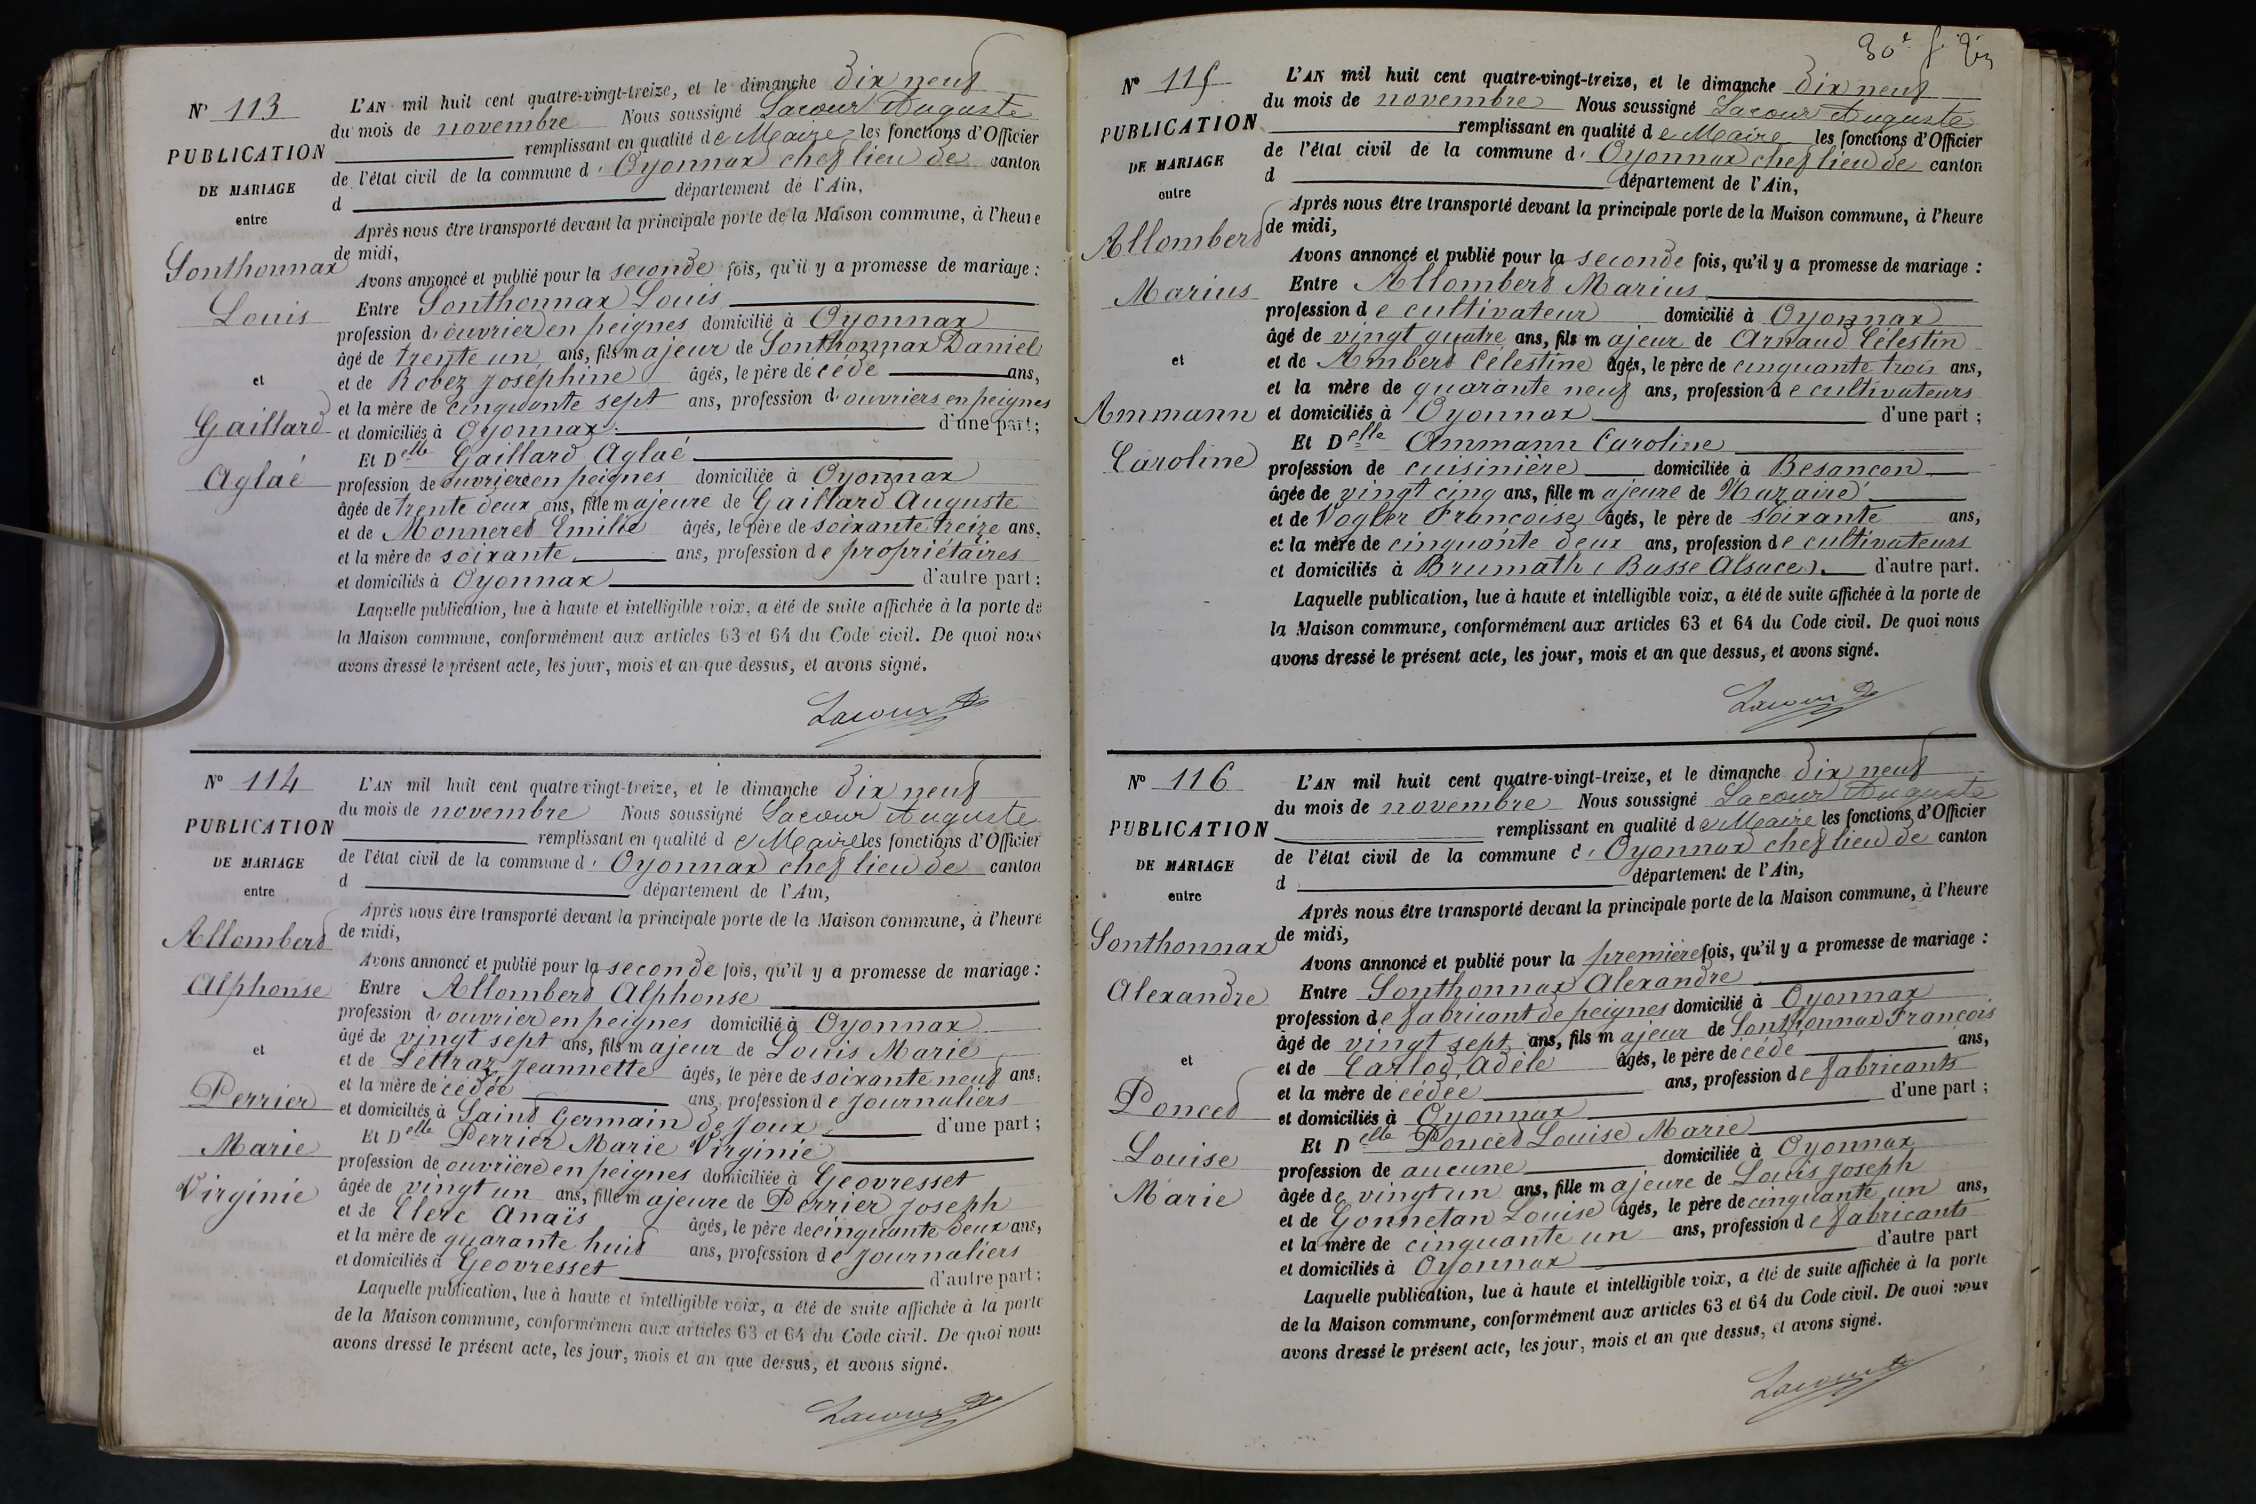 N° 113
PUBLICATION
DE MARIAGE
entre
Sonthonnax
Louis
et
Gaillard
Aglaé
L'AN mil huit cent quatre-vingt-treize, et le dimanche dix neuf
du mois de novembre Nous soussigné Lacour Auguste
remplissant en qualité de Maire les fonctions d'Officier
de l'état civil de la commune d'Oyonnax chef lieu de canton
d département de l'Ain,
Après nous être transporté devant la principale porte de la Maison commune, à l'heure
de midi,
Avons annoncé et publié pour la seconde fois, qu'il y a promesse de mariage :
Entre Sonthonnax Louis
profession d'ouvrier en peignes domicilié à Oyonnax
âgé de trente un ans, fils majeur de Sonthonnax Daniel
et de Robez Joséphine âgés, le père décédé ans,
et la mère de cinquante sept ans, profession d'ouvriers en peignes
et domiciliés à Oyonnax d'une part;
Et Delle Gaillard Aglaé
profession de ouvrière en peignes domiciliée à Oyonnax
âgée de trente deux ans, fille majeure de Gaillard Auguste
et de Monneret Emilie âgés, le père de soixante treize ans,
et la mère de soixante ans, profession de propriétaires
et domiciliés à Oyonnax d'autre part;
Laquelle publication, lue à haute et intelligible voix, a été de suite affichée à la porte de
la Maison commune, conformément aux articles 63 et 64 du Code civil. De quoi nous
avons dressé le présent acte, les jour, mois et an que dessus, et avons signé.
Lacour A
N° 114
PUBLICATION
DE MARIAGE
entre
Allombert
Alphonse
et
Perrier
Marie
Virginie
L'AN mil huit cent quatre-vingt-treize, et le dimanche dix neuf
du mois de novembre Nous soussigné Lacour Auguste
remplissant en qualité de Maire les fonctions d'Officier
de l'état civil de la commune d'Oyonnax chef lieu de canton
d département de l'Ain,
Après nous être transporté devant la principale porte de la Maison commune, à l'heure
de midi,
Avons annoncé et publié pour la seconde fois, qu'il y a promesse de mariage :
Entre Allombert Alphonse
profession d'ouvrier en peignes domicilié à Oyonnax
âgé de vingt sept ans, fils majeur de Louis Marie
et de Lettraz Jeannette âgés, le père de soixante neuf ans,
et la mère décédée ans, profession de journaliers
et domiciliés à Saint Germain de Joux d'une part;
Et Delle Perrier Marie Virginie
profession de ouvrière en peignes domiciliée à Geovresset
âgée de vingt un ans, fille majeure de Perrier Joseph
et de Clerc Anaïs âgés, le père de cinquante deux ans,
et la mère de quarante huit ans, profession de journaliers
et domiciliés à Geovresset d'autre part;
Laquelle publication, lue à haute et intelligible voix, a été de suite affichée à la porte
de la Maison commune, conformément aux articles 63 et 64 du Code civil. De quoi nous
avons dressé le présent acte, les jour, mois et an que dessus, et avons signé.
Lacour A
30e f.
N° 115
PUBLICATION
DE MARIAGE
entre
Allombert
Marius
et
Ammann
Caroline
L'AN mil huit cent quatre-vingt-treize, et le dimanche dix neuf
du mois de novembre Nous soussigné Lacour Auguste
remplissant en qualité de Maire les fonctions d'Officier
de l'état civil de la commune d'Oyonnax chef lieu de canton
d département de l'Ain,
Après nous être transporté devant la principale porte de la Maison commune, à l'heure
de midi,
Avons annoncé et publié pour la seconde fois, qu'il y a promesse de mariage :
Entre Allombert Marius
profession de cultivateur domicilié à Oyonnax
âgé de vingt quatre ans, fils majeur de Arnaud Célestin
et de Ambert Célestine âgés, le père de cinquante trois ans,
et la mère de quarante neuf ans, profession de cultivateurs
et domiciliés à Oyonnax d'une part;
Et Delle Ammann Caroline
profession de cuisinière domiciliée à Besançon
âgée de vingt cinq ans, fille majeure de Nazaire
et de Vogler Françoise âgés, le père de soixante ans,
et la mère de cinquante deux ans, profession de cultivateurs
et domiciliés à Brumath (Basse Alsace). d'autre part.
Laquelle publication, lue à haute et intelligible voix, a été de suite affichée à la porte de
la Maison commune, conformément aux articles 63 et 64 du Code civil. De quoi nous
avons dressé le présent acte, les jour, mois et an que dessus, et avons signé.
Lacour A
N° 116
PUBLICATION
DE MARIAGE
entre
Sonthonnax
Alexandre
et
Poncet
Louise
Marie
L'AN mil huit cent quatre-vingt-treize, et le dimanche dix neuf
du mois de novembre Nous soussigné Lacour Auguste
remplissant en qualité de Maire les fonctions d'Officier
de l'état civil de la commune d'Oyonnax chef lieu de canton
d département de l'Ain,
Après nous être transporté devant la principale porte de la Maison commune, à l'heure
de midi,
Avons annoncé et publié pour la première fois, qu'il y a promesse de mariage :
Entre Sonthonnax Alexandre
profession de fabricant de peignes domicilié à Oyonnax
âgé de vingt sept ans, fils majeur de Sonthonnax François
et de Carlod Adèle âgés, le père décédé ans,
et la mère décédée ans, profession de fabricants
et domiciliés à Oyonnax d'une part;
Et Delle Poncet Louise Marie
profession de aucune domiciliée à Oyonnax
âgée de vingt un ans, fille majeure de Louis Joseph
et de Gonnetan Louise âgés, le père de cinquante un ans,
et la mère de cinquante un ans, profession de fabricants
et domiciliés à Oyonnax d'autre part
Laquelle publication, lue à haute et intelligible voix, a été de suite affichée à la porte
de la Maison commune, conformément aux articles 63 et 64 du Code civil. De quoi nous
avons dressé le présent acte, les jour, mois et an que dessus, et avons signé.
Lacour A